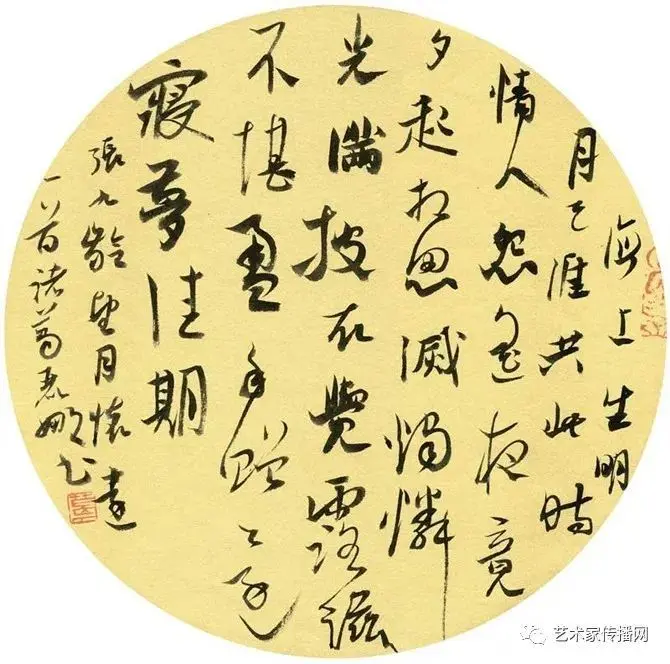 海上生明
月天涯共此時
情人怨遥夜竟
夕起相思滅燭憐
光滿披衣覺露滋
不堪盈手贈還
寢夢佳期
張九齡望月懷遠
一首諸葛麗娜書
艺术家传播网